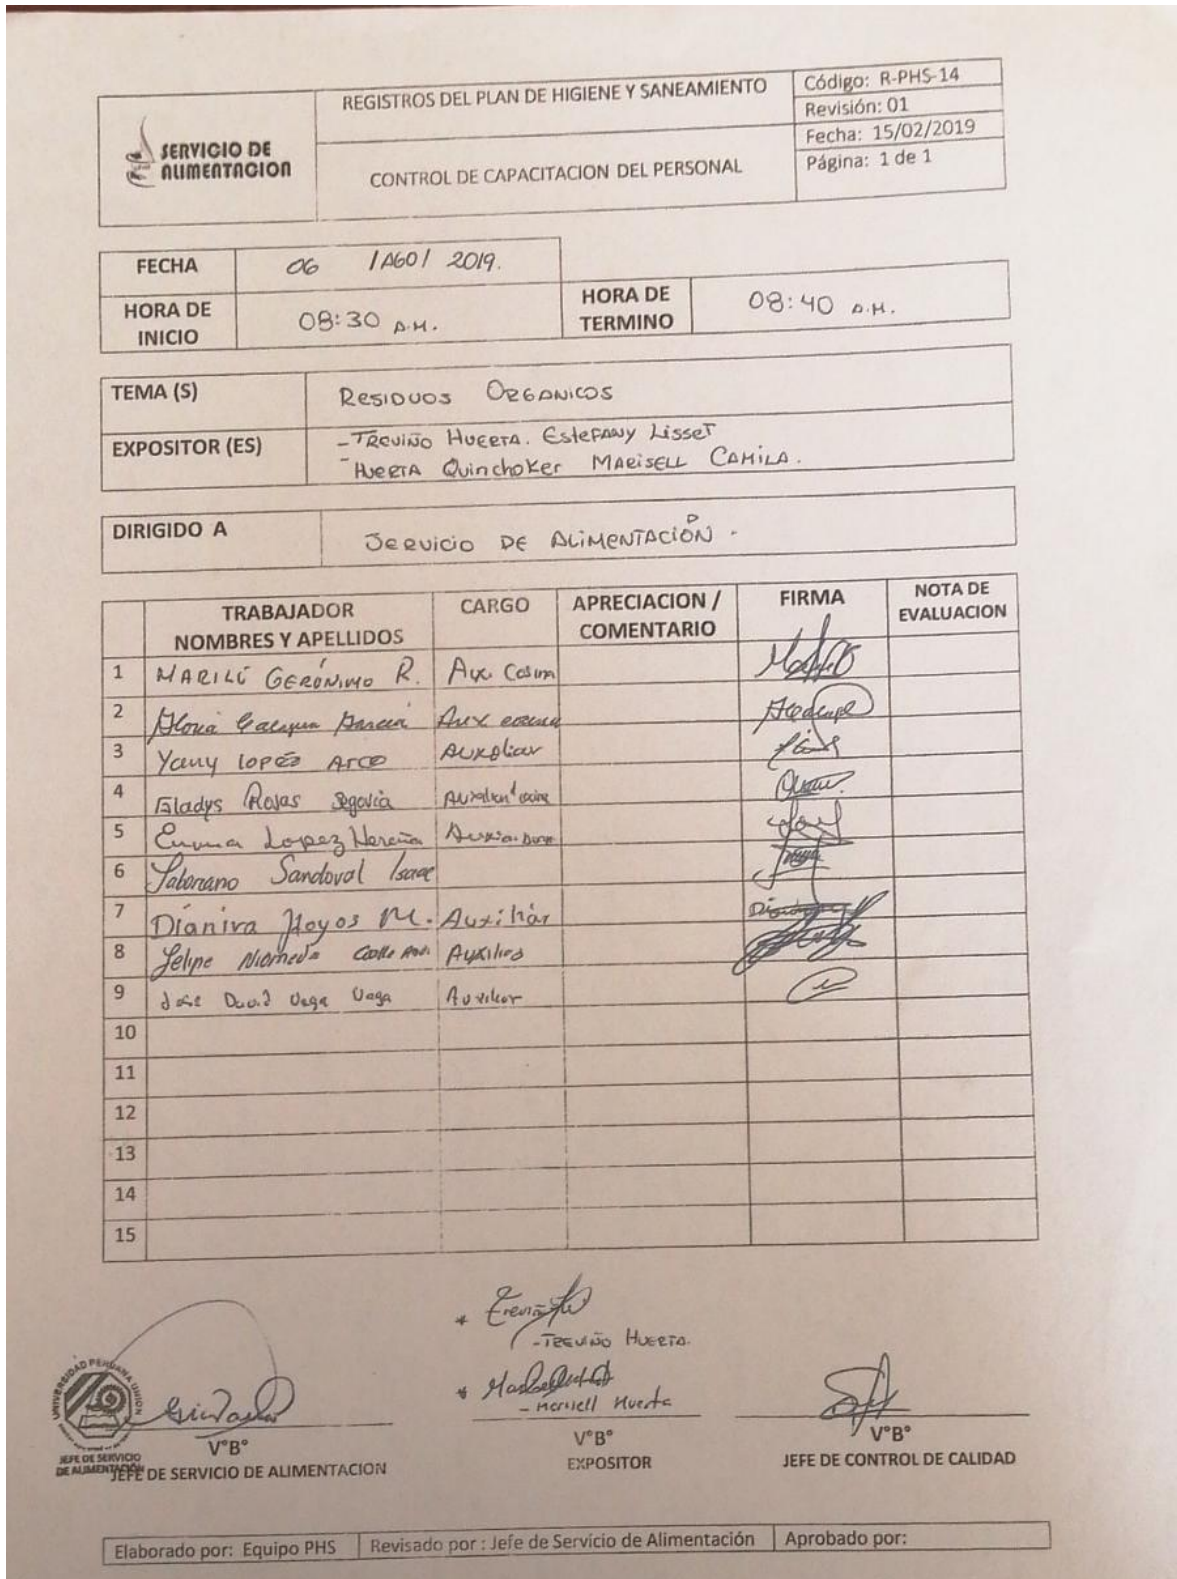 SERVICIO DE
ALIMENTACION
REGISTROS DEL PLAN DE HIGIENE Y SANEAMIENTO
CONTROL DE CAPACITACION DEL PERSONAL
Código: R-PHS-14
Revisión: 01
Fecha: 15/02/2019
Página: 1 de 1
FECHA 06 /AGO/ 2019.
HORA DE INICIO 08:30 A.M. HORA DE TERMINO 08:40 A.M.
TEMA (S) RESIDUOS ORGANICOS
EXPOSITOR (ES) - TREVIÑO HUERTA. ESTEFANY LISSET
- HUERTA QUINCHOKER MARISELL CAMILA.
DIRIGIDO A SERVICIO DE ALIMENTACIÓN.
TRABAJADOR NOMBRES Y APELLIDOS CARGO APRECIACION / COMENTARIO FIRMA NOTA DE EVALUACION
1 MARILÚ GERÓNIMO R. Aux.
2 Aux
3 Yany lopéz Arce Auxiliar
4 Gladys Rojas Segovia
5 Emma Lopez
6 Sandoval Isaac
7 Dianira Hoyos M. Auxiliar
8 Felipe
9 Jose David Vega Vega Auxiliar
10
11
12
13
14
15
* Treviño
- TREVIÑO HUERTA.
*
- Marisell Huerta
UNIVERSIDAD PERUANA UNION
JEFE DE SERVICIO
DE ALIMENTACIÓN
V°B°
JEFE DE SERVICIO DE ALIMENTACION
V°B°
EXPOSITOR
V°B°
JEFE DE CONTROL DE CALIDAD
Elaborado por: Equipo PHS Revisado por : Jefe de Servicio de Alimentación Aprobado por: